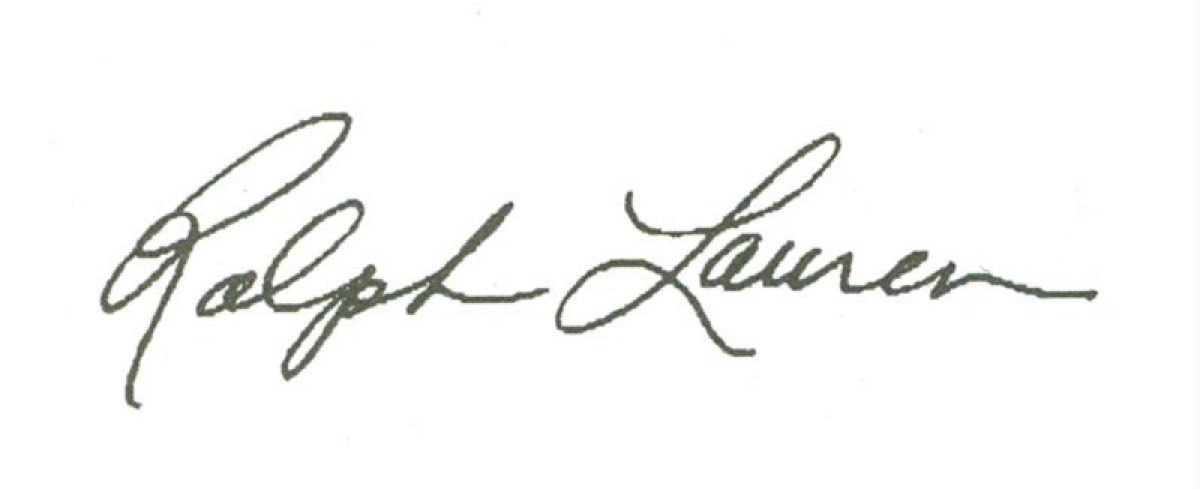 Ralph Lauren